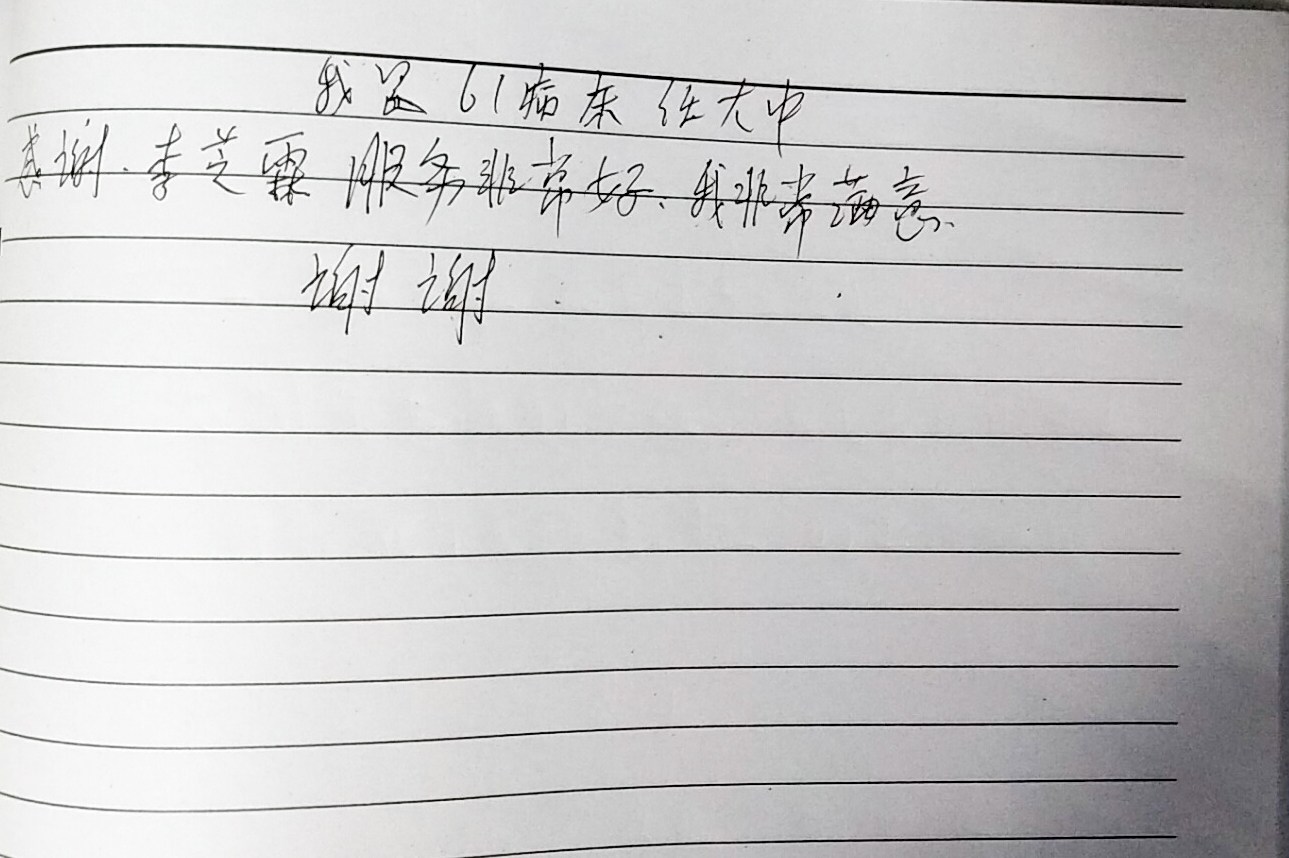 我是61病床任大中
感谢.李芝霖服务非常好.我非常满意.
谢谢.